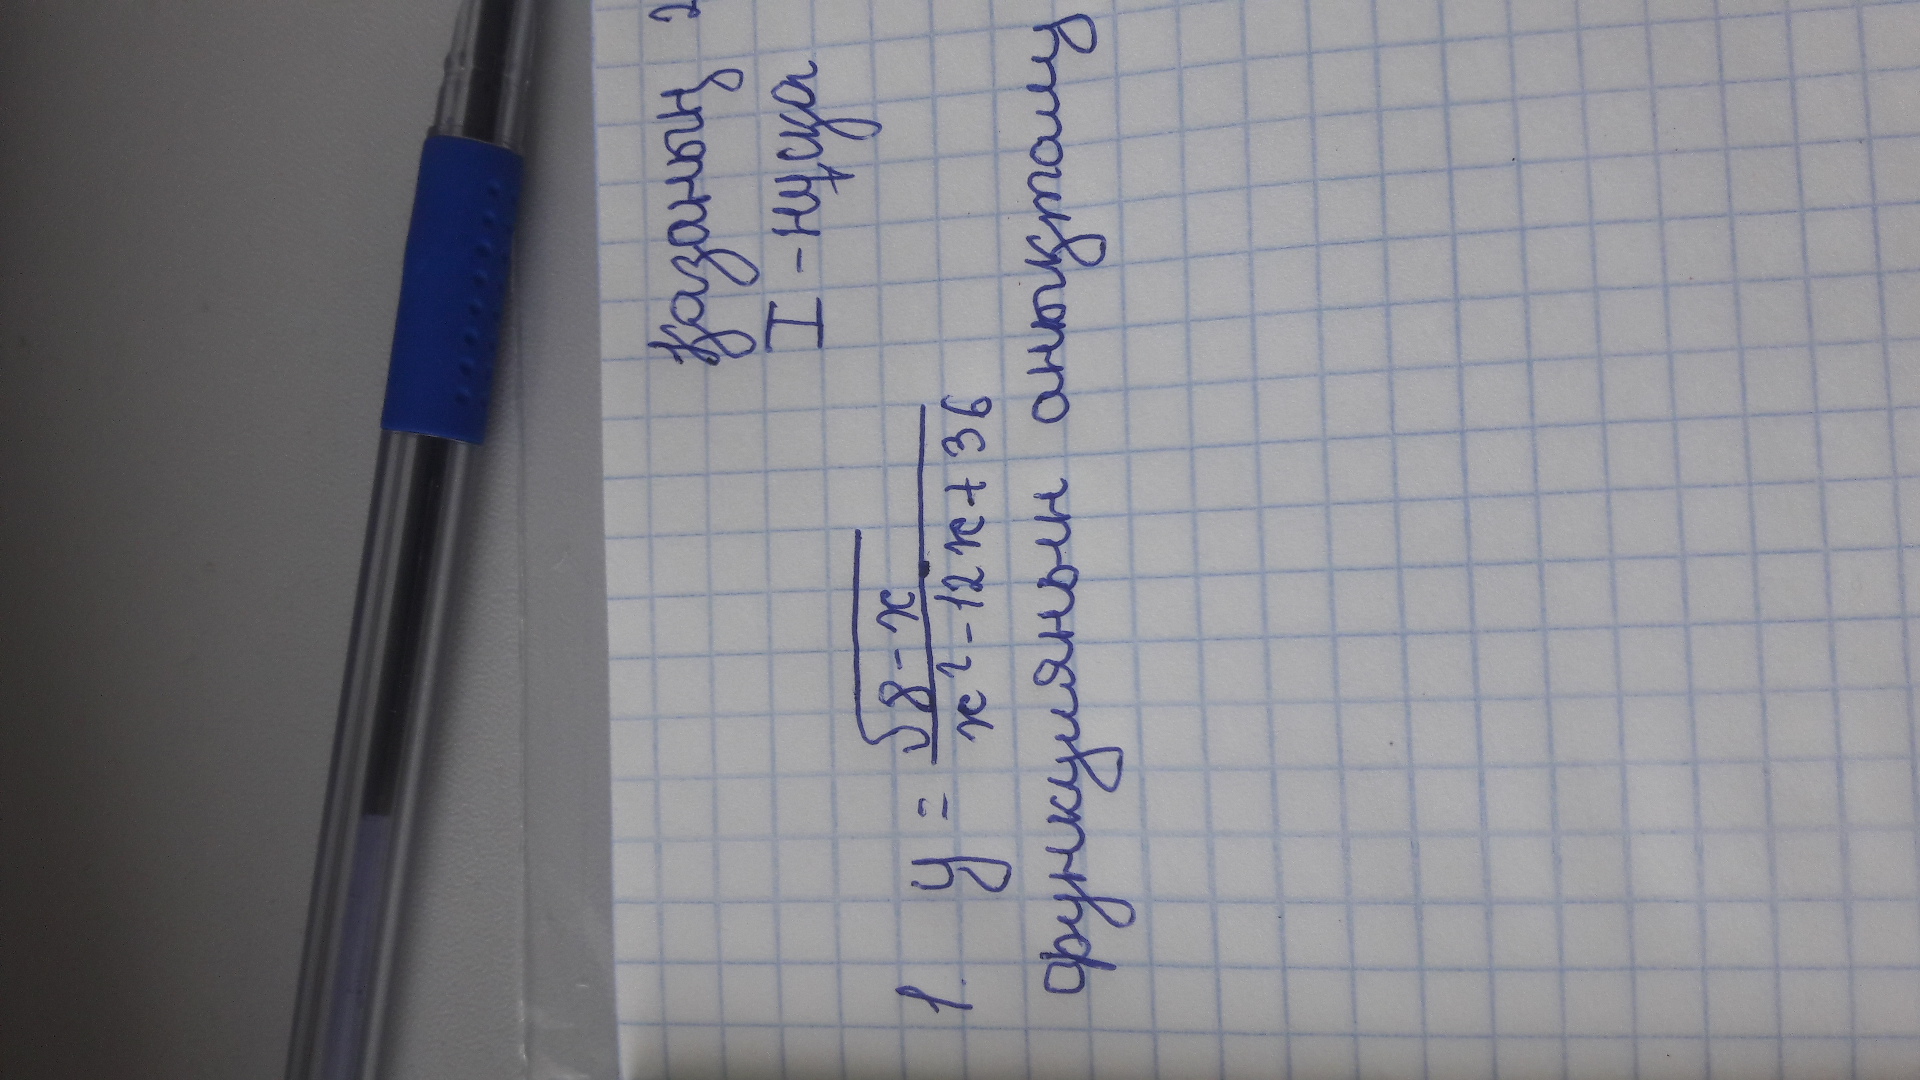 Қазанның 2
I - нұсқа
1. y = √8-x / x² - 12x + 36
функцияның анықталу